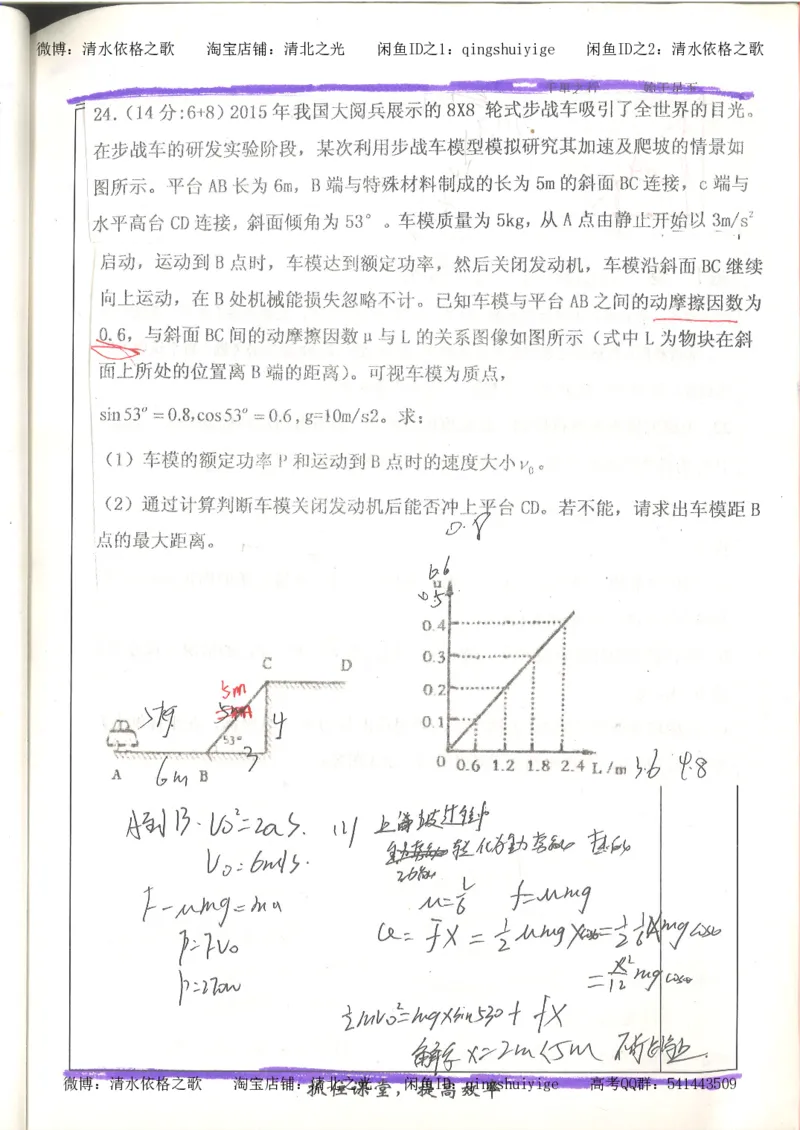 微博：清水依格之歌 淘宝店铺：清北之光 闲鱼ID之1：qingshuiyige 闲鱼ID之2：清水依格之歌
24.（14分:6+8）2015年我国大阅兵展示的8X8 轮式步战车吸引了全世界的目光。
在步战车的研发实验阶段，某次利用步战车模型模拟研究其加速及爬坡的情景如
图所示。平台AB长为6m，B端与特殊材料制成的长为5m的斜面BC连接，c端与
水平高台CD连接，斜面倾角为53°。车模质量为5kg，从A点由静止开始以3m/s²
启动，运动到B点时，车模达到额定功率，然后关闭发动机，车模沿斜面BC继续
向上运动，在B处机械能损失忽略不计。已知车模与平台AB之间的动摩擦因数为
0.6，与斜面BC间的动摩擦因数μ与L的关系图像如图所示（式中L为物块在斜
面上所处的位置离B端的距离）。可视车模为质点，
sin53°=0.8,cos53°=0.6,g=10m/s2。求：
（1）车模的额定功率P和运动到B点时的速度大小v₀。
（2）通过计算判断车模关闭发动机后能否冲上平台CD。若不能，请求出车模距B
点的最大距离。
0.8
0.6
μ
0.5
0.4
0.3
0.2
0.1
0 0.6 1.2 1.8 2.4 L/m 3.6 4.8
C D
5m
5kg 4
53°
3
A 6m B
A到B. V₀²=2as.
V₀=6m/s.
F-μmg=ma
P=FV₀
P=270w
(2) 上斜坡过程中
μ=L/6 f=μmg
½mv₀²=mgxsin53°+fx
解得 x=2m<5m
微博：清水依格之歌 淘宝店铺：清北之光 闲鱼ID：qingshuiyige 高考QQ群：541443509
抓住课堂，提高效率